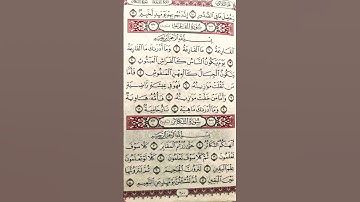 وَحُصِّلَ مَا فِي الصُّدُورِ إِنَّ رَبَّهُم بِهِمْ يَوْمَئِذٍ لَّخَبِيرٌ
سُورَةُ القَارِعَةِ
بِسْمِ اللَّهِ الرَّحْمَٰنِ الرَّحِيمِ
الْقَارِعَةُ مَا الْقَارِعَةُ وَمَا أَدْرَاكَ مَا الْقَارِعَةُ
يَوْمَ يَكُونُ النَّاسُ كَالْفَرَاشِ الْمَبْثُوثِ
وَتَكُونُ الْجِبَالُ كَالْعِهْنِ الْمَنفُوشِ فَأَمَّا
مَن ثَقُلَتْ مَوَازِينُهُ فَهُوَ فِي عِيشَةٍ رَّاضِيَةٍ
وَأَمَّا مَنْ خَفَّتْ مَوَازِينُهُ فَأُمُّهُ هَاوِيَةٌ
وَمَا أَدْرَاكَ مَا هِيَهْ نَارٌ حَامِيَةٌ
سُورَةُ التَّكَاثُرِ
بِسْمِ اللَّهِ الرَّحْمَٰنِ الرَّحِيمِ
أَلْهَاكُمُ التَّكَاثُرُ حَتَّىٰ زُرْتُمُ الْمَقَابِرَ كَلَّا سَوْفَ
تَعْلَمُونَ ثُمَّ كَلَّا سَوْفَ تَعْلَمُونَ كَلَّا لَوْ
تَعْلَمُونَ عِلْمَ الْيَقِينِ لَتَرَوُنَّ الْجَحِيمَ ثُمَّ لَتَرَوُنَّهَا
عَيْنَ الْيَقِينِ ثُمَّ لَتُسْأَلُنَّ يَوْمَئِذٍ عَنِ النَّعِيمِ